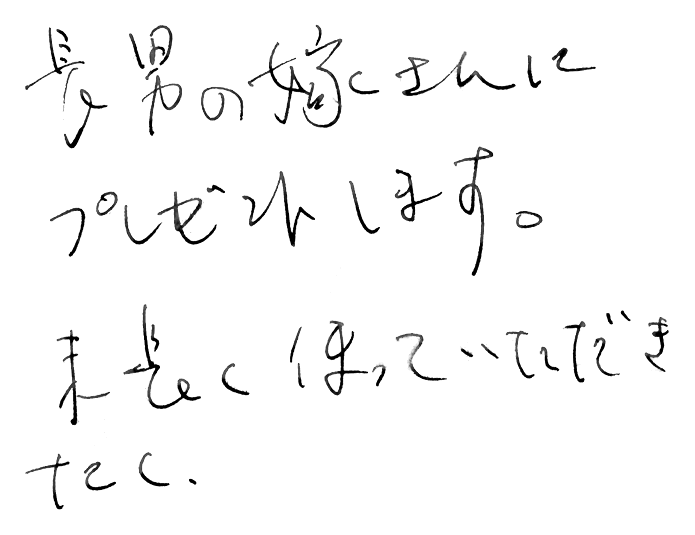 長男の嫁くさんに
プレゼントします。
末長く使っていただき
たく、